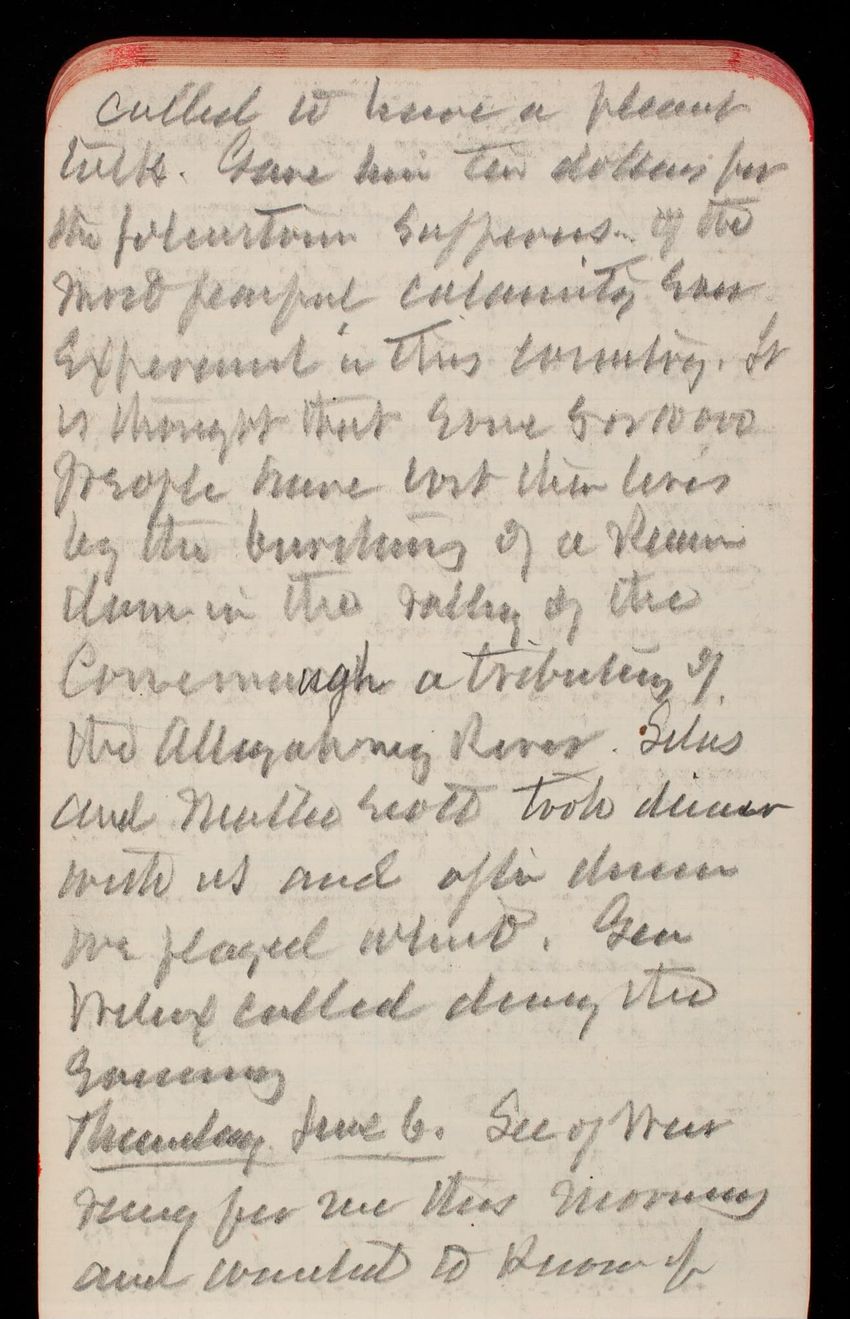 called to have a pleasant
talk. Gave him ten dollars for
the Johnstown Sufferers of the
most fearful calamity ever
Experienced in this country. It
is thought that some 5 or 10 000
People have lost their lives
by the bursting of a
dam in the valley of the
Connemaugh a tributary of
the Allegahney River. Silas
and Mattie Scott took dinner
with us and after dinner
we played whist. Gen
Wilcox called during the
Evening
Thursday June 6. Sec of War
rang for me this morning
and wanted to know if